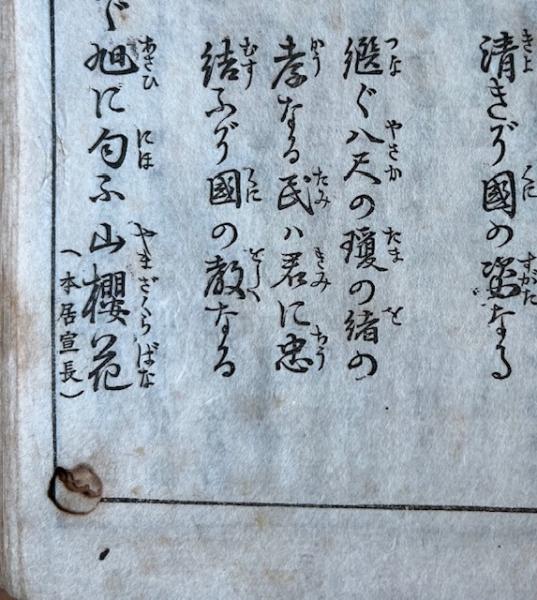 清きが國の姿なる
きよ くに すがた
繼ぐ八尺の瓊の緒の
つな やさか たま を
孝なる民ハ君に忠
かう たみ きみ ちう
結ふが國の教なる
むす くに をしへ
旭に匂ふ山櫻花
あさひ にほ やまざくらばな
(本居宣長)